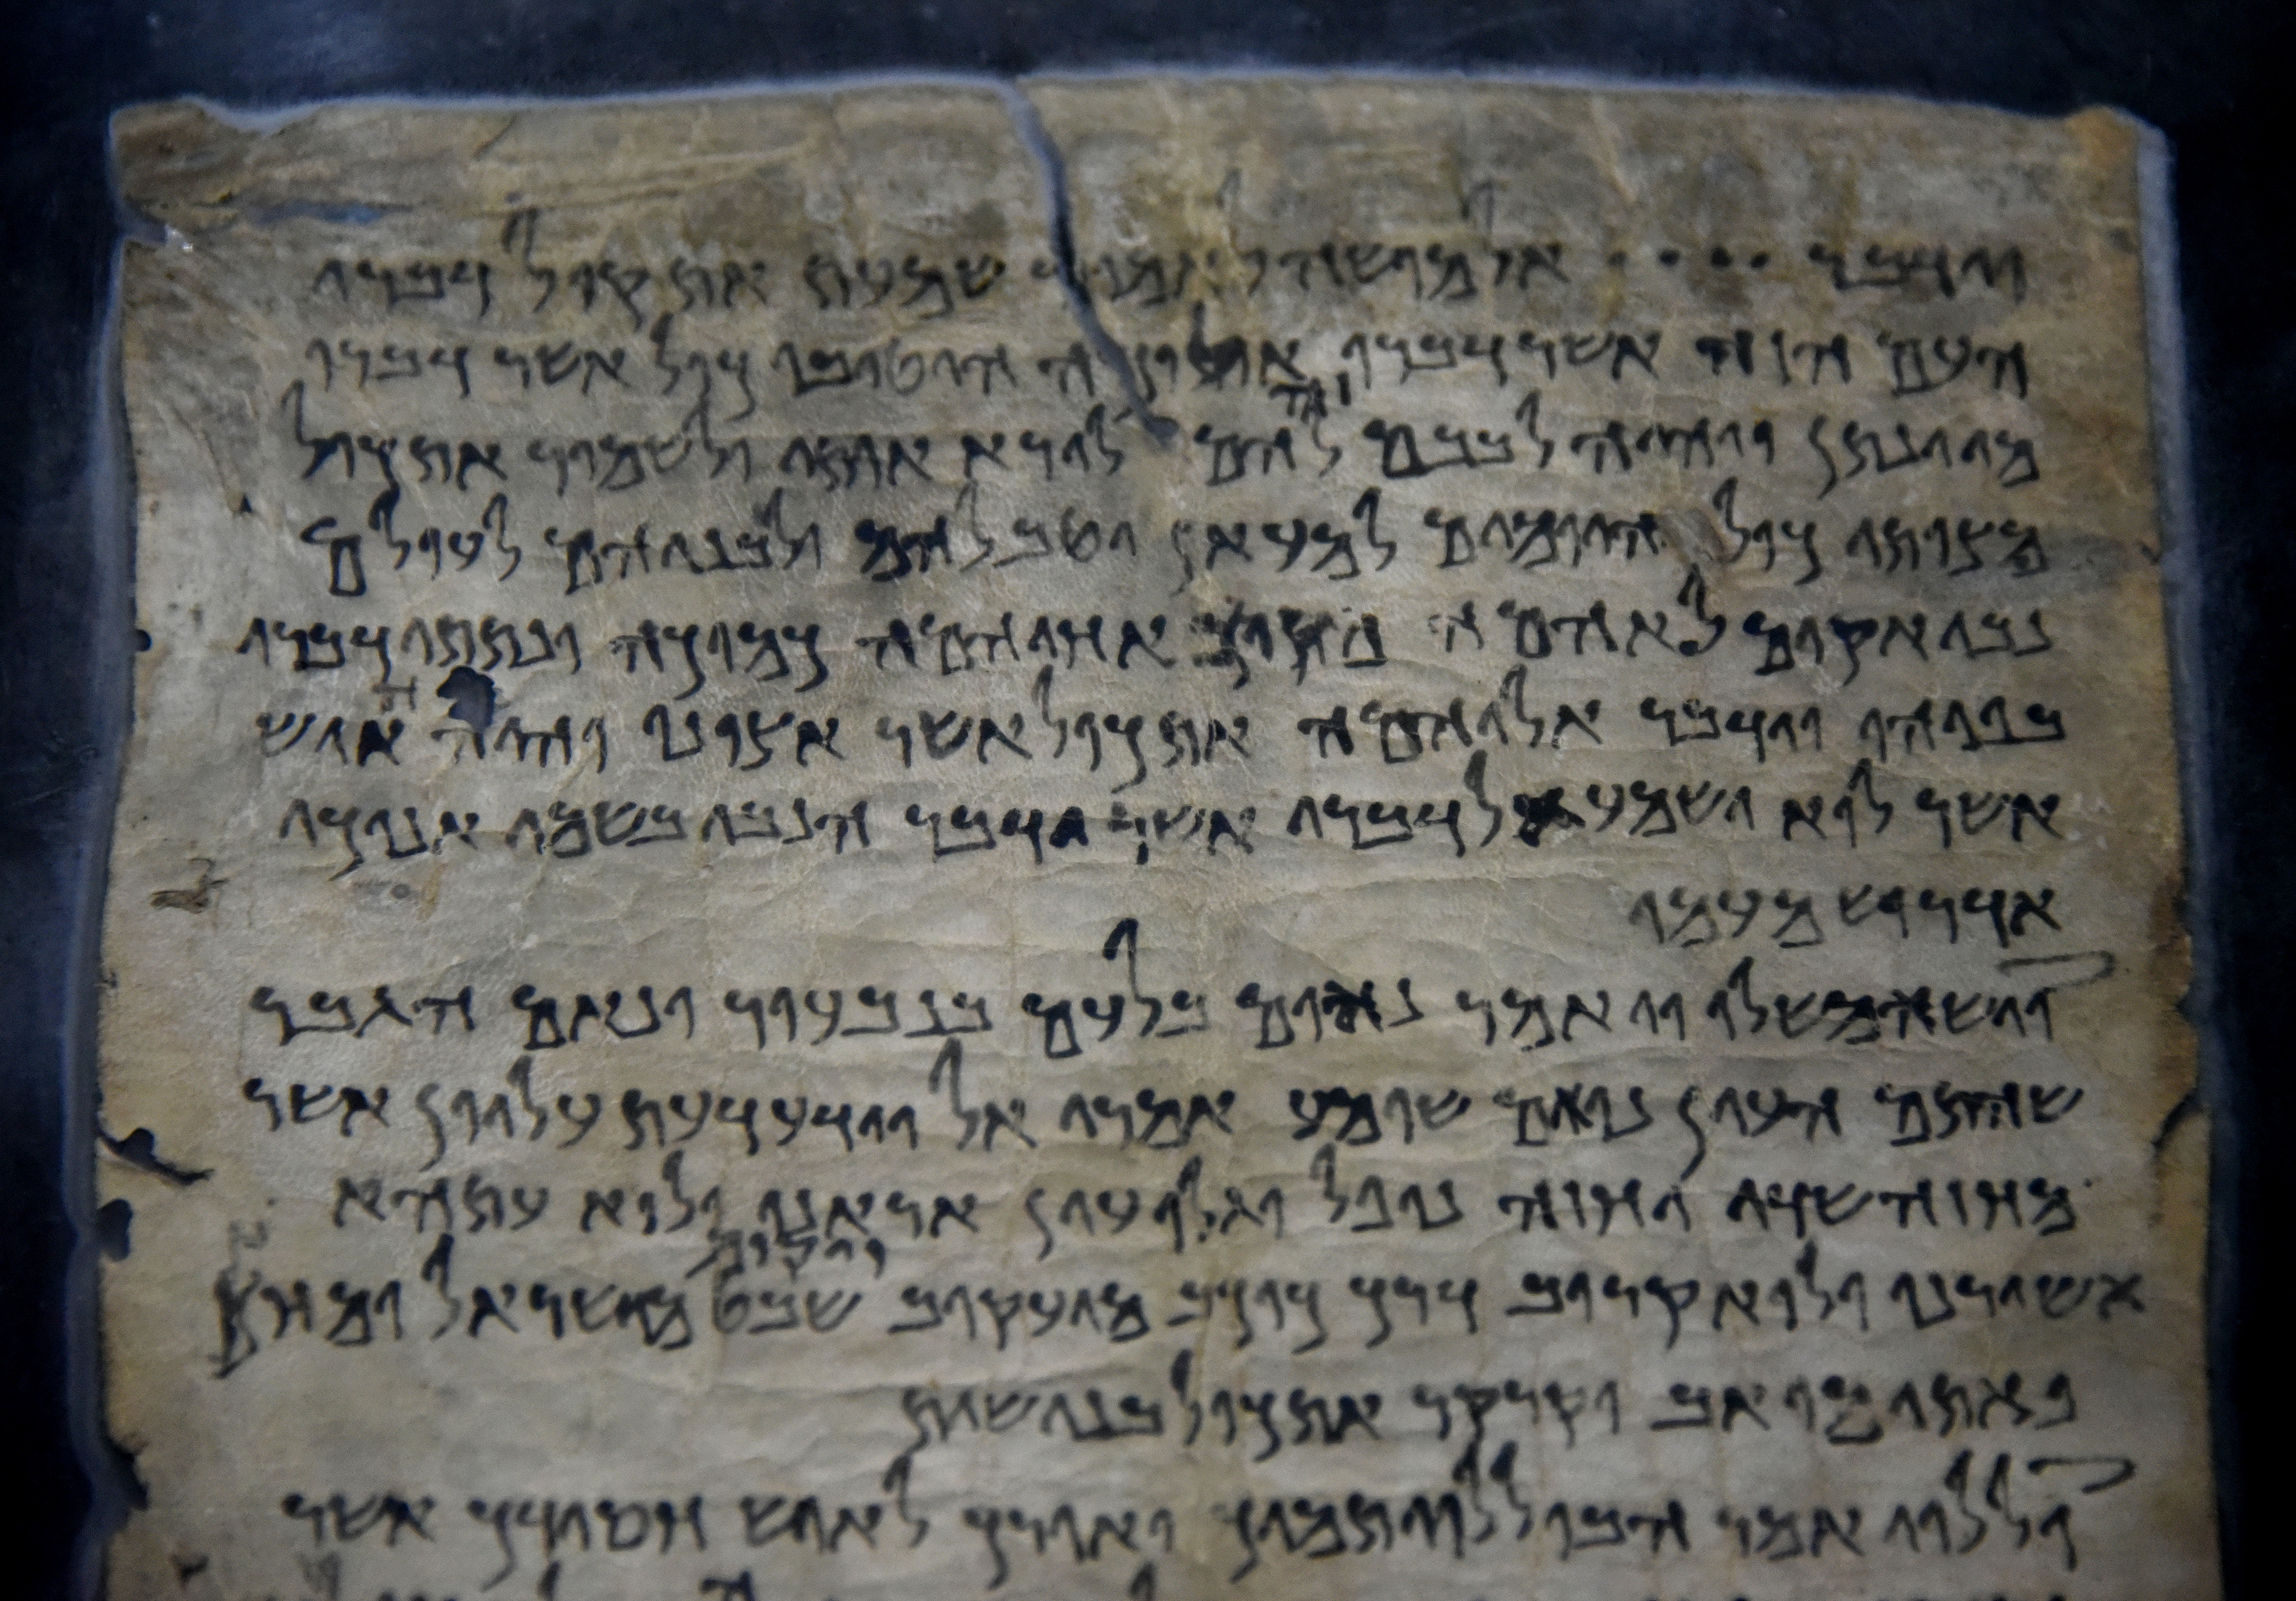 וידבר •••• אל מושה לאמור שמעת את קול דברי
העם הזה אשר דברו אליכה היטיבו כול אשר דברו
מי ינתן ויהיה לבבם זה להם לירא אותי ולשמור את כול
מצותי כול היומים למעאן יטב להם ולבניהם לעולם
נבי אקים לאהמה מקרב אחיהמה כמוכה ונתתי דברי
בפיהו וידבר אליהמה את כול אשר אצונו והיה האיש
אשר לוא ישמע אל דברי אשר ידבר הנבי בשמי אנוכי
אדרוש מעמו
וישא משלו ויאמר נאום בלעם בנבעור ונאם הגבר
שהתם העין נואם שומע אמרי אל וידע דעת עליון אשר
מחזה שדי יחזה נופל וגלו עין אראנו ולוא עתהא
אשורנו ולוא קרוב דרך כוכב מיעקוב ויקום שבט מישראל ומחץ
פאתי מואב וקרקר את כול בני שית
וללוי אמר הבו ללוי תמיך ואורך לאיש חסידך אשר